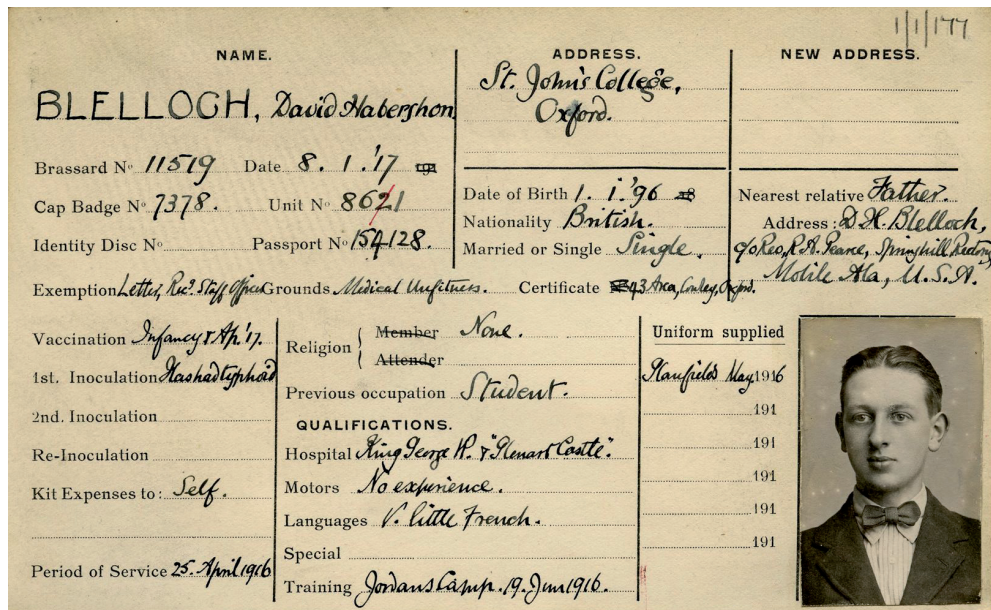 1/1/177
NAME.
BLELLOCH, David Habershon
Brassard No 11519 Date 8. 1. '17
Cap Badge No 7378. Unit No 8621
Identity Disc No Passport No 154128.
ADDRESS.
St. John's College,
Oxford.
NEW ADDRESS.
Date of Birth 1. 1. '96
Nationality British.
Married or Single Single.
Nearest relative Father.
Address: D. H. Blelloch,
c/o Rev. R. A. Pearce, Springhill Rectory
Mobile Ala, U.S.A.
Exemption Letter, Rec? Staff Officer Grounds Medical Unfitness. Certificate 43 Area, Cowley, Oxford.
Vaccination Infancy & Ap. '17.
1st. Inoculation Has had typhoid
2nd. Inoculation
Re-Inoculation
Kit Expenses to: Self.
Period of Service 25. April 1916
Religion { Member None.
Attender
Previous occupation Student.
QUALIFICATIONS.
Hospital King George H. & "Glenart Castle".
Motors No experience.
Languages V. little French.
Special
Training Jordans Camp. 19. Jun 1916.
Uniform supplied
May 1916
191
191
191
191
191